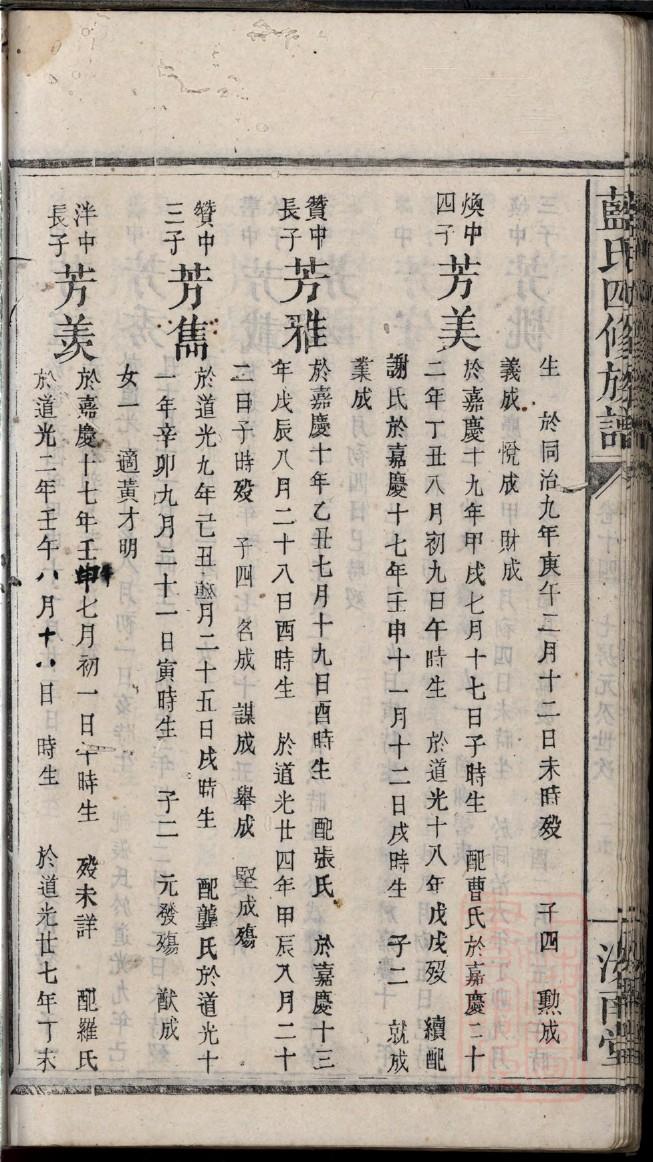 藍氏四修族譜
汝南堂
生 於同治九年庚午二月十二日未時歿 子四 勲成
義成 悅成 財成
煥中四子 芳美 於嘉慶十九年甲戌七月十七日子時生 配曹氏於嘉慶二十
二年丁丑八月初九日午時生 於道光十八年戊戌歿 續配
謝氏於嘉慶十七年壬申十一月十二日戌時生 子二 就成
業成
贊中長子 芳雅 於嘉慶十年乙丑七月十九日酉時生 配張氏 於嘉慶十三
年戊辰八月二十八日酉時生 於道光廿四年甲辰八月二十
二日子時歿 子四 名成 謀成 舉成 堅成殤
贊中三子 芳雋 於道光九年己丑 月二十五日戌時生 配龔氏於道光十
一年辛卯九月二十二日寅時生 子二 元發殤 猷成
女一 適黃才明
泮中長子 芳羨 於嘉慶十七年壬申七月初一日 時生 歿未詳 配羅氏
於道光二年壬午八月十八日 時生 於道光廿七年丁未